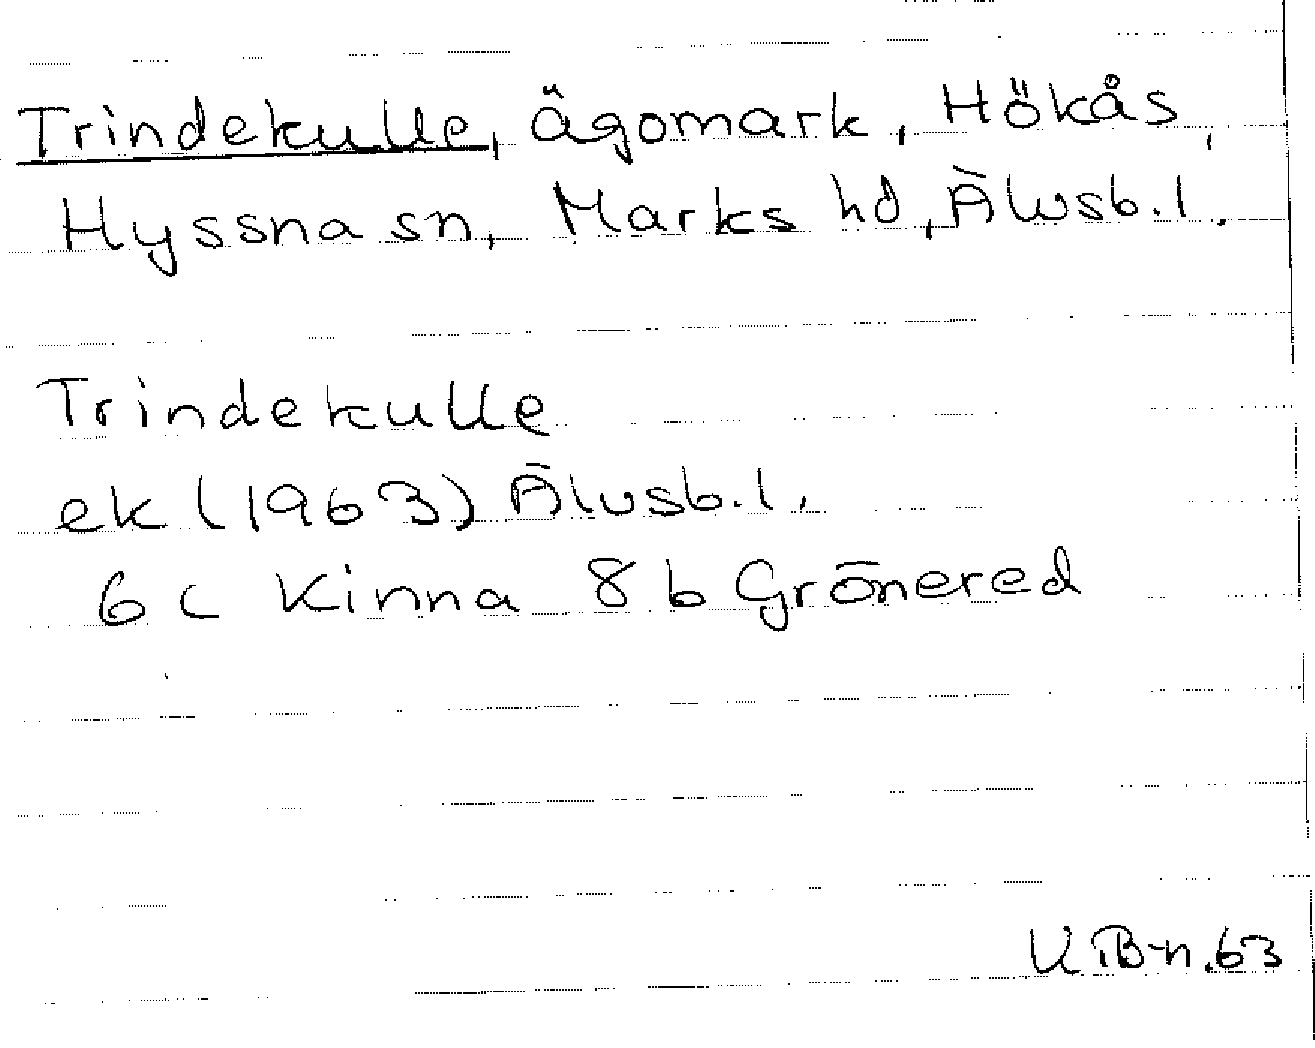 Trindekulle, ägomark, Hökås,
Hyssna sn, Marks hd, Älvsb.l.
Trindekulle
ek (1963) Älvsb.l.
6 c Kinna 8 b Grönered
U.B-n.63